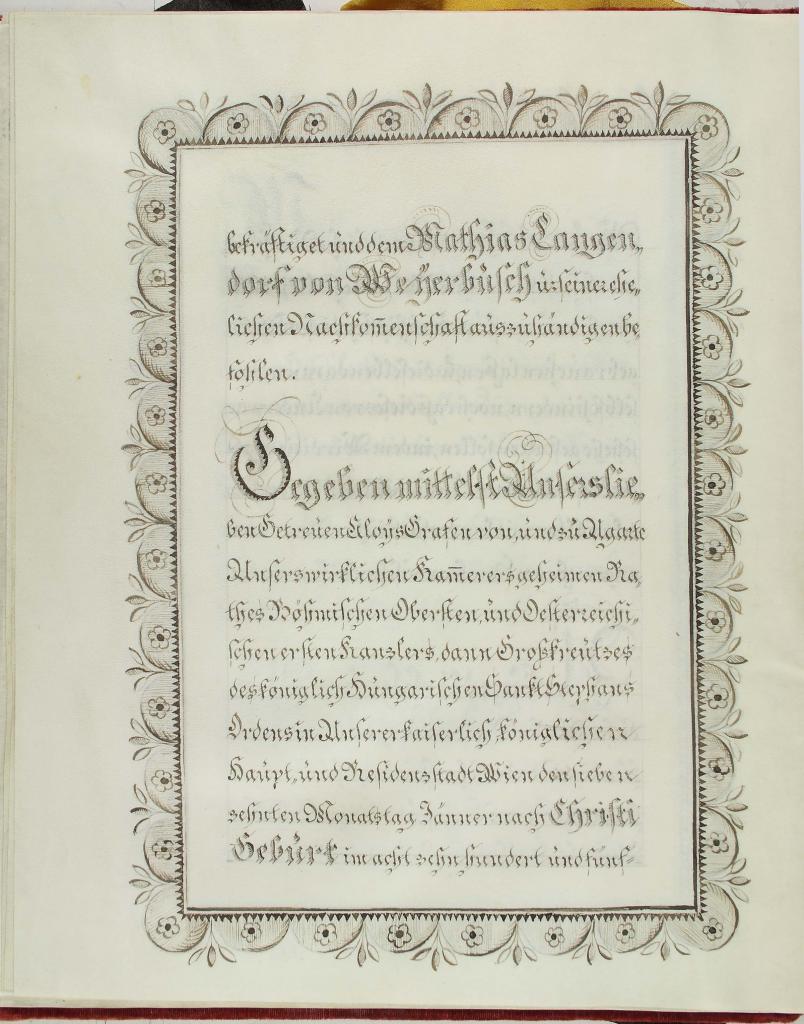 bekräftiget und dem Mathias Langen„
dorf von Weyerbusch u: seiner ehe„
lichen Nachkom̄enschaft auszuhändigen be„
fohlen.
Gegeben mittelst Unsers lie„
ben Getreuen Aloys Grafen von, und zu Ugarte
Unsers wirklichen Kam̄erers geheimen Ra„
thes Böhmischen Obersten, und Oesterreichi„
schen ersten Kanzlers, dann Großkreutzes
des königlich Hungarischen Sankt Stephans
Ordens in Unserer kaiserlich, königlichen
Haupt, und Residenzstadt Wien den sieben
zehnten Monatstag Jänner nach Christi
Geburt im acht zehn hundert und fünf-